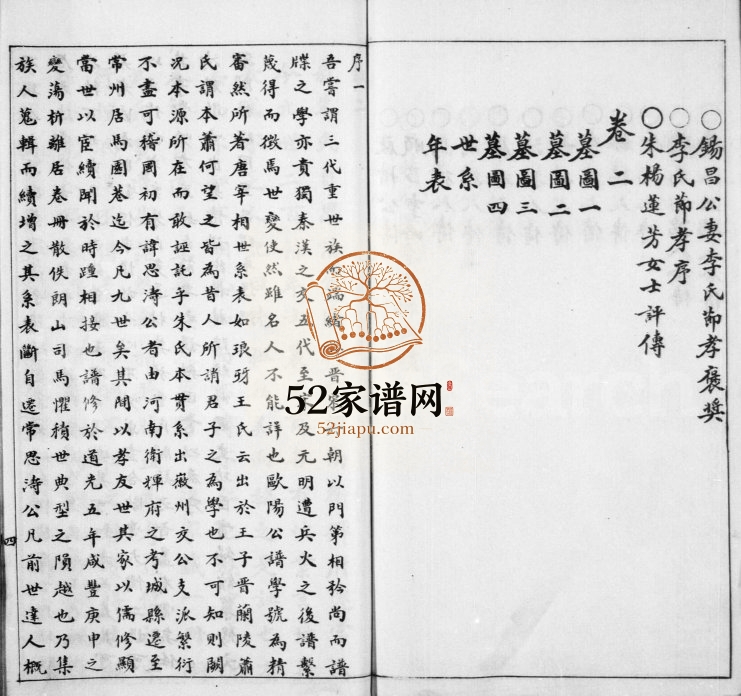 ○錫昌公妻李氏節孝褒獎
○李氏節孝序
○朱楊蓮芳女士評傳
卷二
墓圖一
墓圖二
墓圖三
墓圖四
世系
年表
序一
吾嘗謂三代重世族而端緒 晉 朝以門第相矜尚而譜
牒之學亦貴獨秦漢之交五代至 及元明遭兵火之後譜繫
蔑得而徵焉世變使然雖名人不能詳也歐陽公譜學號為精
審然所著唐宰相世系表如琅琊王氏云出於王子晉蘭陵蕭
氏謂本蕭何望之皆為昔人所誚君子之為學也不可知則闕
況本源所在而敢誣託乎朱氏本貫系出徽州文公支派繁衍
不盡可稽國初有諱思濤公者由河南衛輝府之考城縣遷至
常州居馬園巷迄今凡九世矣其間以孝友世其家以儒修顯
當世以宦績聞於時踵相接也譜修於道光五年咸豐庚申之
變蕩析離居卷冊散佚朗山司馬懼積世典型之隕越也乃集
族人蒐輯而續增之其系表斷自遷常思濤公凡前世達人概
四
52家谱网
52jiapu.com